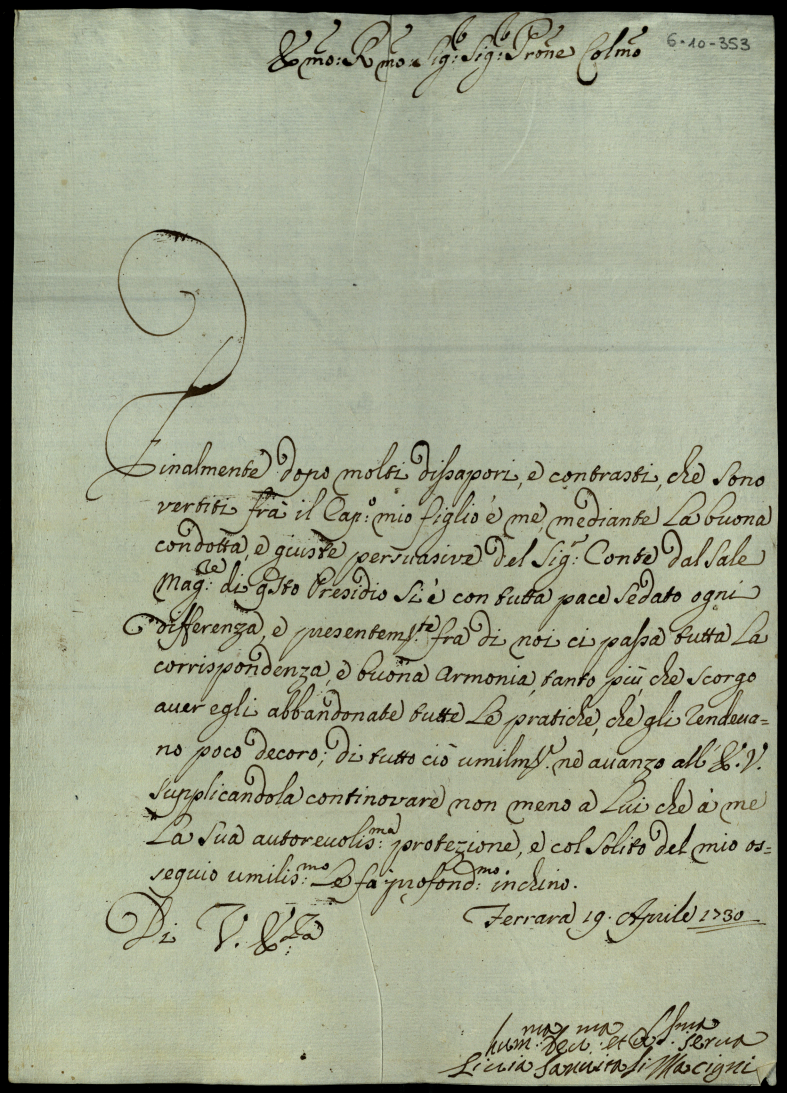 Emo: Rmo: Sig: Sig: Prone Colmo
6-10-353
Finalmente dopo molti dissapori, e contrasti, che sono
vertiti frà il Cap:o mio figlio è me, mediante La buona
condotta, e giuiste persuasive del Sig.r Conte dal Sale
Mag:re di qsto Presidio si è con tutta pace sedato ogni
differenza, e presentemte frà di noi ci passa tutta La
corrispondenza, e buona armonia, tanto più che scorgo
aver egli abbandonate tutte Le pratiche, che gli rendeua=
no poco decoro; di tutto ciò umilmte ne auanzo all' E. V.
supplicandola continovare non meno a Lui che à me
La sua autoreuolis:ma protezione, e col solito del mio os=
sequio umilis:mo Le fa profond:mo inchino.
Di V. Eza
Ferrara 19. Aprile 1730
hum:ma et serua
Liuia Sanuitali Macigni